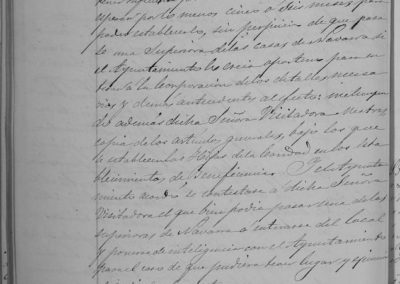 esperar por lo menos cinco o seis meses para
poder establecerlo, sin perjuicio de que pasa
se una Superiora de las casas de Navarra si
el Ayuntamiento lo creia oportuno para en
terar a la Corporacion de los detalles necesa
rios y demas antecedentes al efecto:
además dicha Señora Visitadora
copia de los articulos generales, bajo los que
se establecen las Hijas de la Caridad en los Esta
blecimientos de Beneficencia. Y el Ayunta
miento acordó se contestase a dicha Señora
Visitadora el que bien podia pasar una de las
superioras de Navarra a enterarse del local
y ponerse de inteligencia con el Ayuntamiento
para el caso de que pudiera tener lugar y